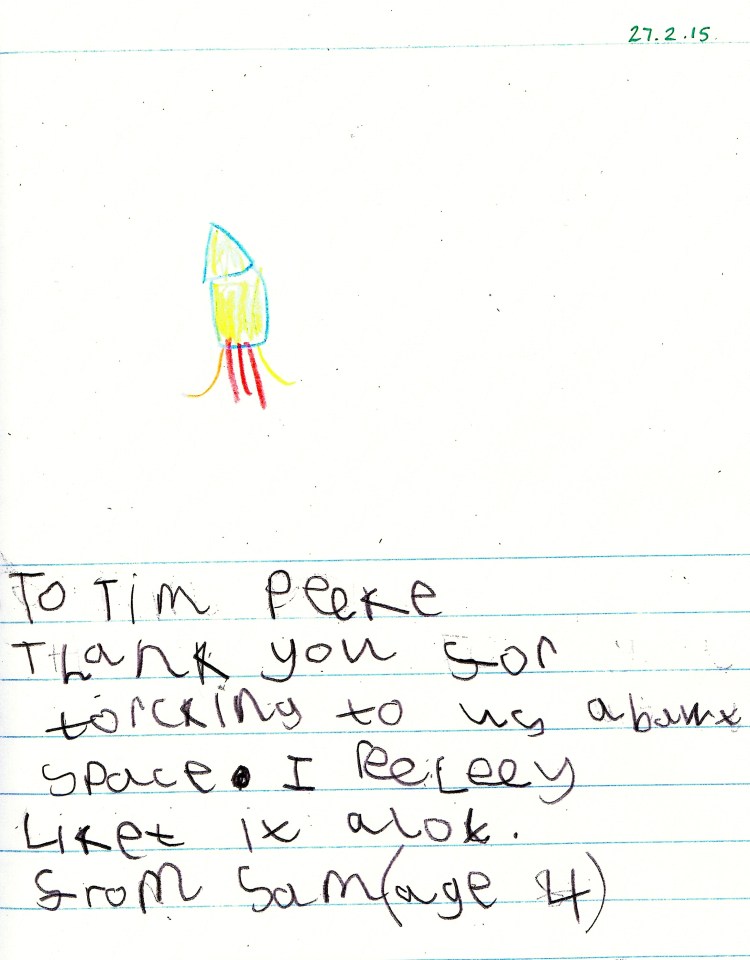 27.2.15.
To Tim Peeke
Thank you for
torcking to us abawt
space. I Reeleey
Liket it alot.
from Sam (age 4)